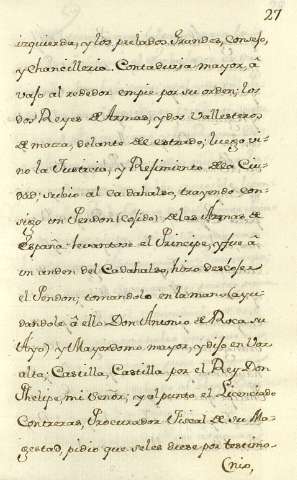 27
izquierda, y los prelados Grandes, Consejo,
y Chancilleria Contaduria mayor, â
vajo al rededor empie por su orden; los
dos Reyes de Armas, y dos Vallesteros
de maza, delante del estrado; luego vi-
no la Justicia, y Regimiento de la Ciu-
dad; subio al Cadahalso, trayendo con-
sigo un Pendon (Cogido) de las Armas de
España: levantose el Principe, y fue â
un anden del Cadahalso, hizo descoger
el Pendon; tomandolo en la mano (ayu-
dandole â ello Don Antonio de Roca su
Ayo) y Mayordomo mayor, y dijo en Voz
alta; Castilla, Castilla por el Rey Don
Phelipe, mi Señor; y al punto el Licenciado
Contreras, Procurador Fiscal de su Ma-
gestad, pidio que se les diese por testimo-
(nio,